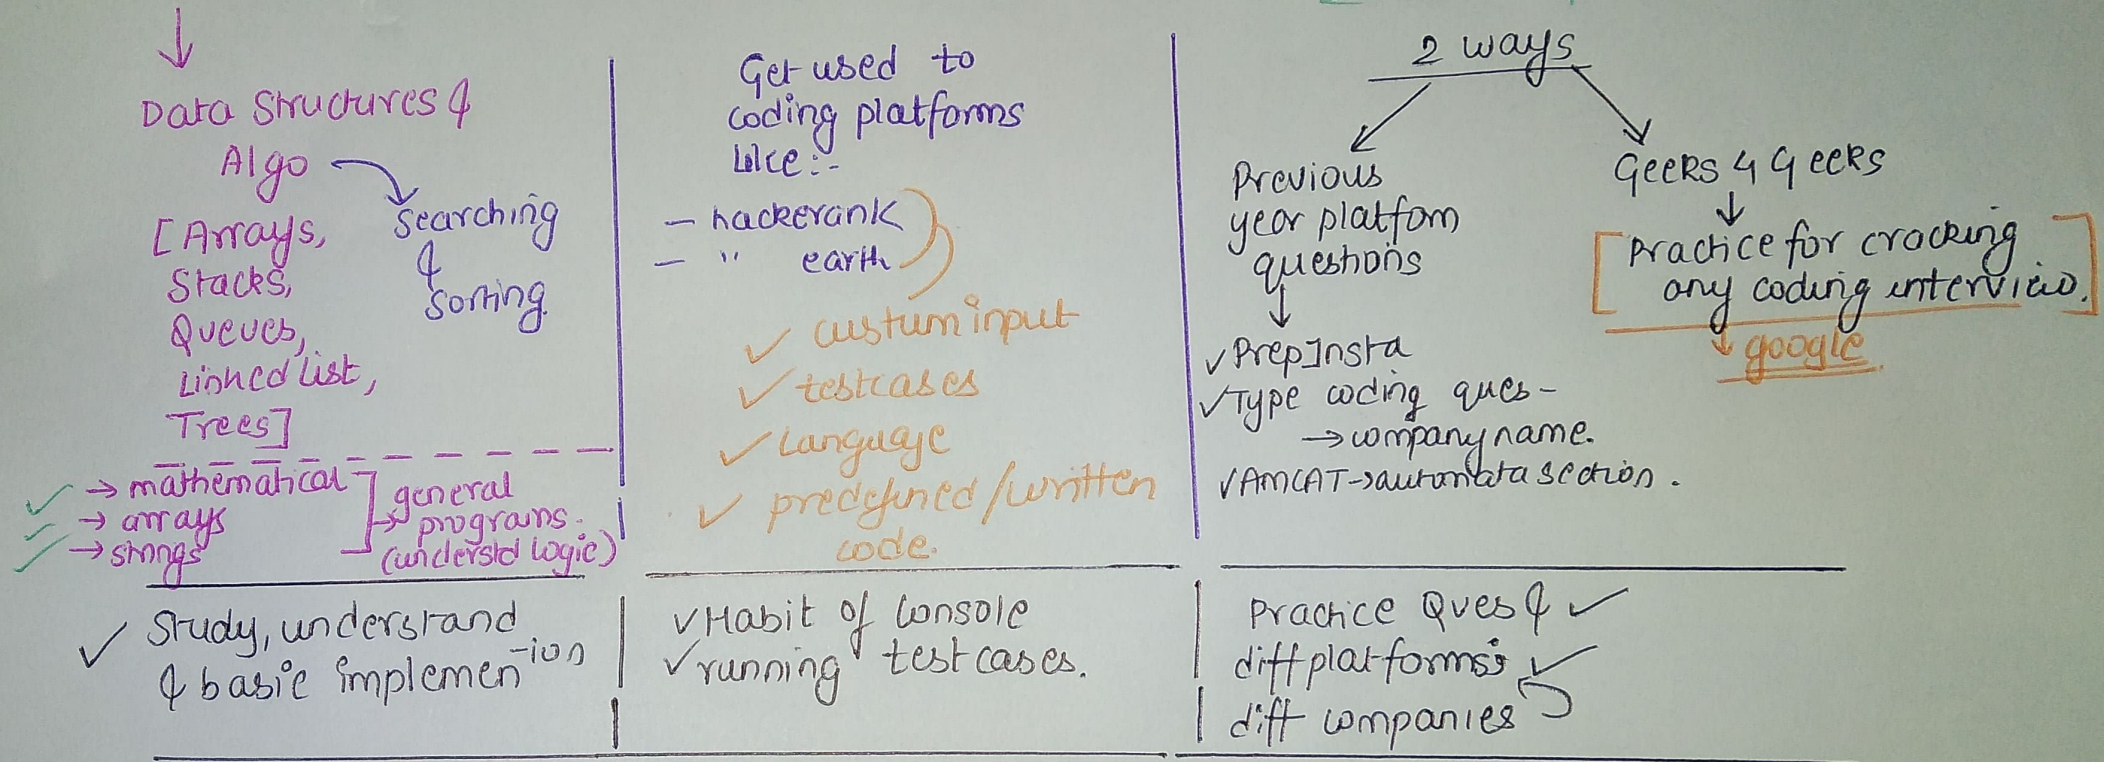 Data Structures &
Algo
Searching
&
Sorting
[Arrays,
Stacks,
Queues,
Linked list,
Trees]
→ mathematical
→ arrays
→ strings
general
programs.
(understd logic)
✓ Study, understand
& basic implemen-ion
Get used to
coding platforms
like:-
- hackerank
- " earth
✓ custum input
✓ testcases
✓ Language
✓ predefined/written
code.
✓ Habit of console
✓ running test cases.
2 ways
Previous
year platfom
questions
✓ PrepInsta
✓ Type coding ques-
→ company name.
✓ AMCAT → automata section.
Geeks 4 Geeks
[Practice for cracking
any coding interview.]
google
Practice Ques & ✓
diff platforms ✓
diff companies